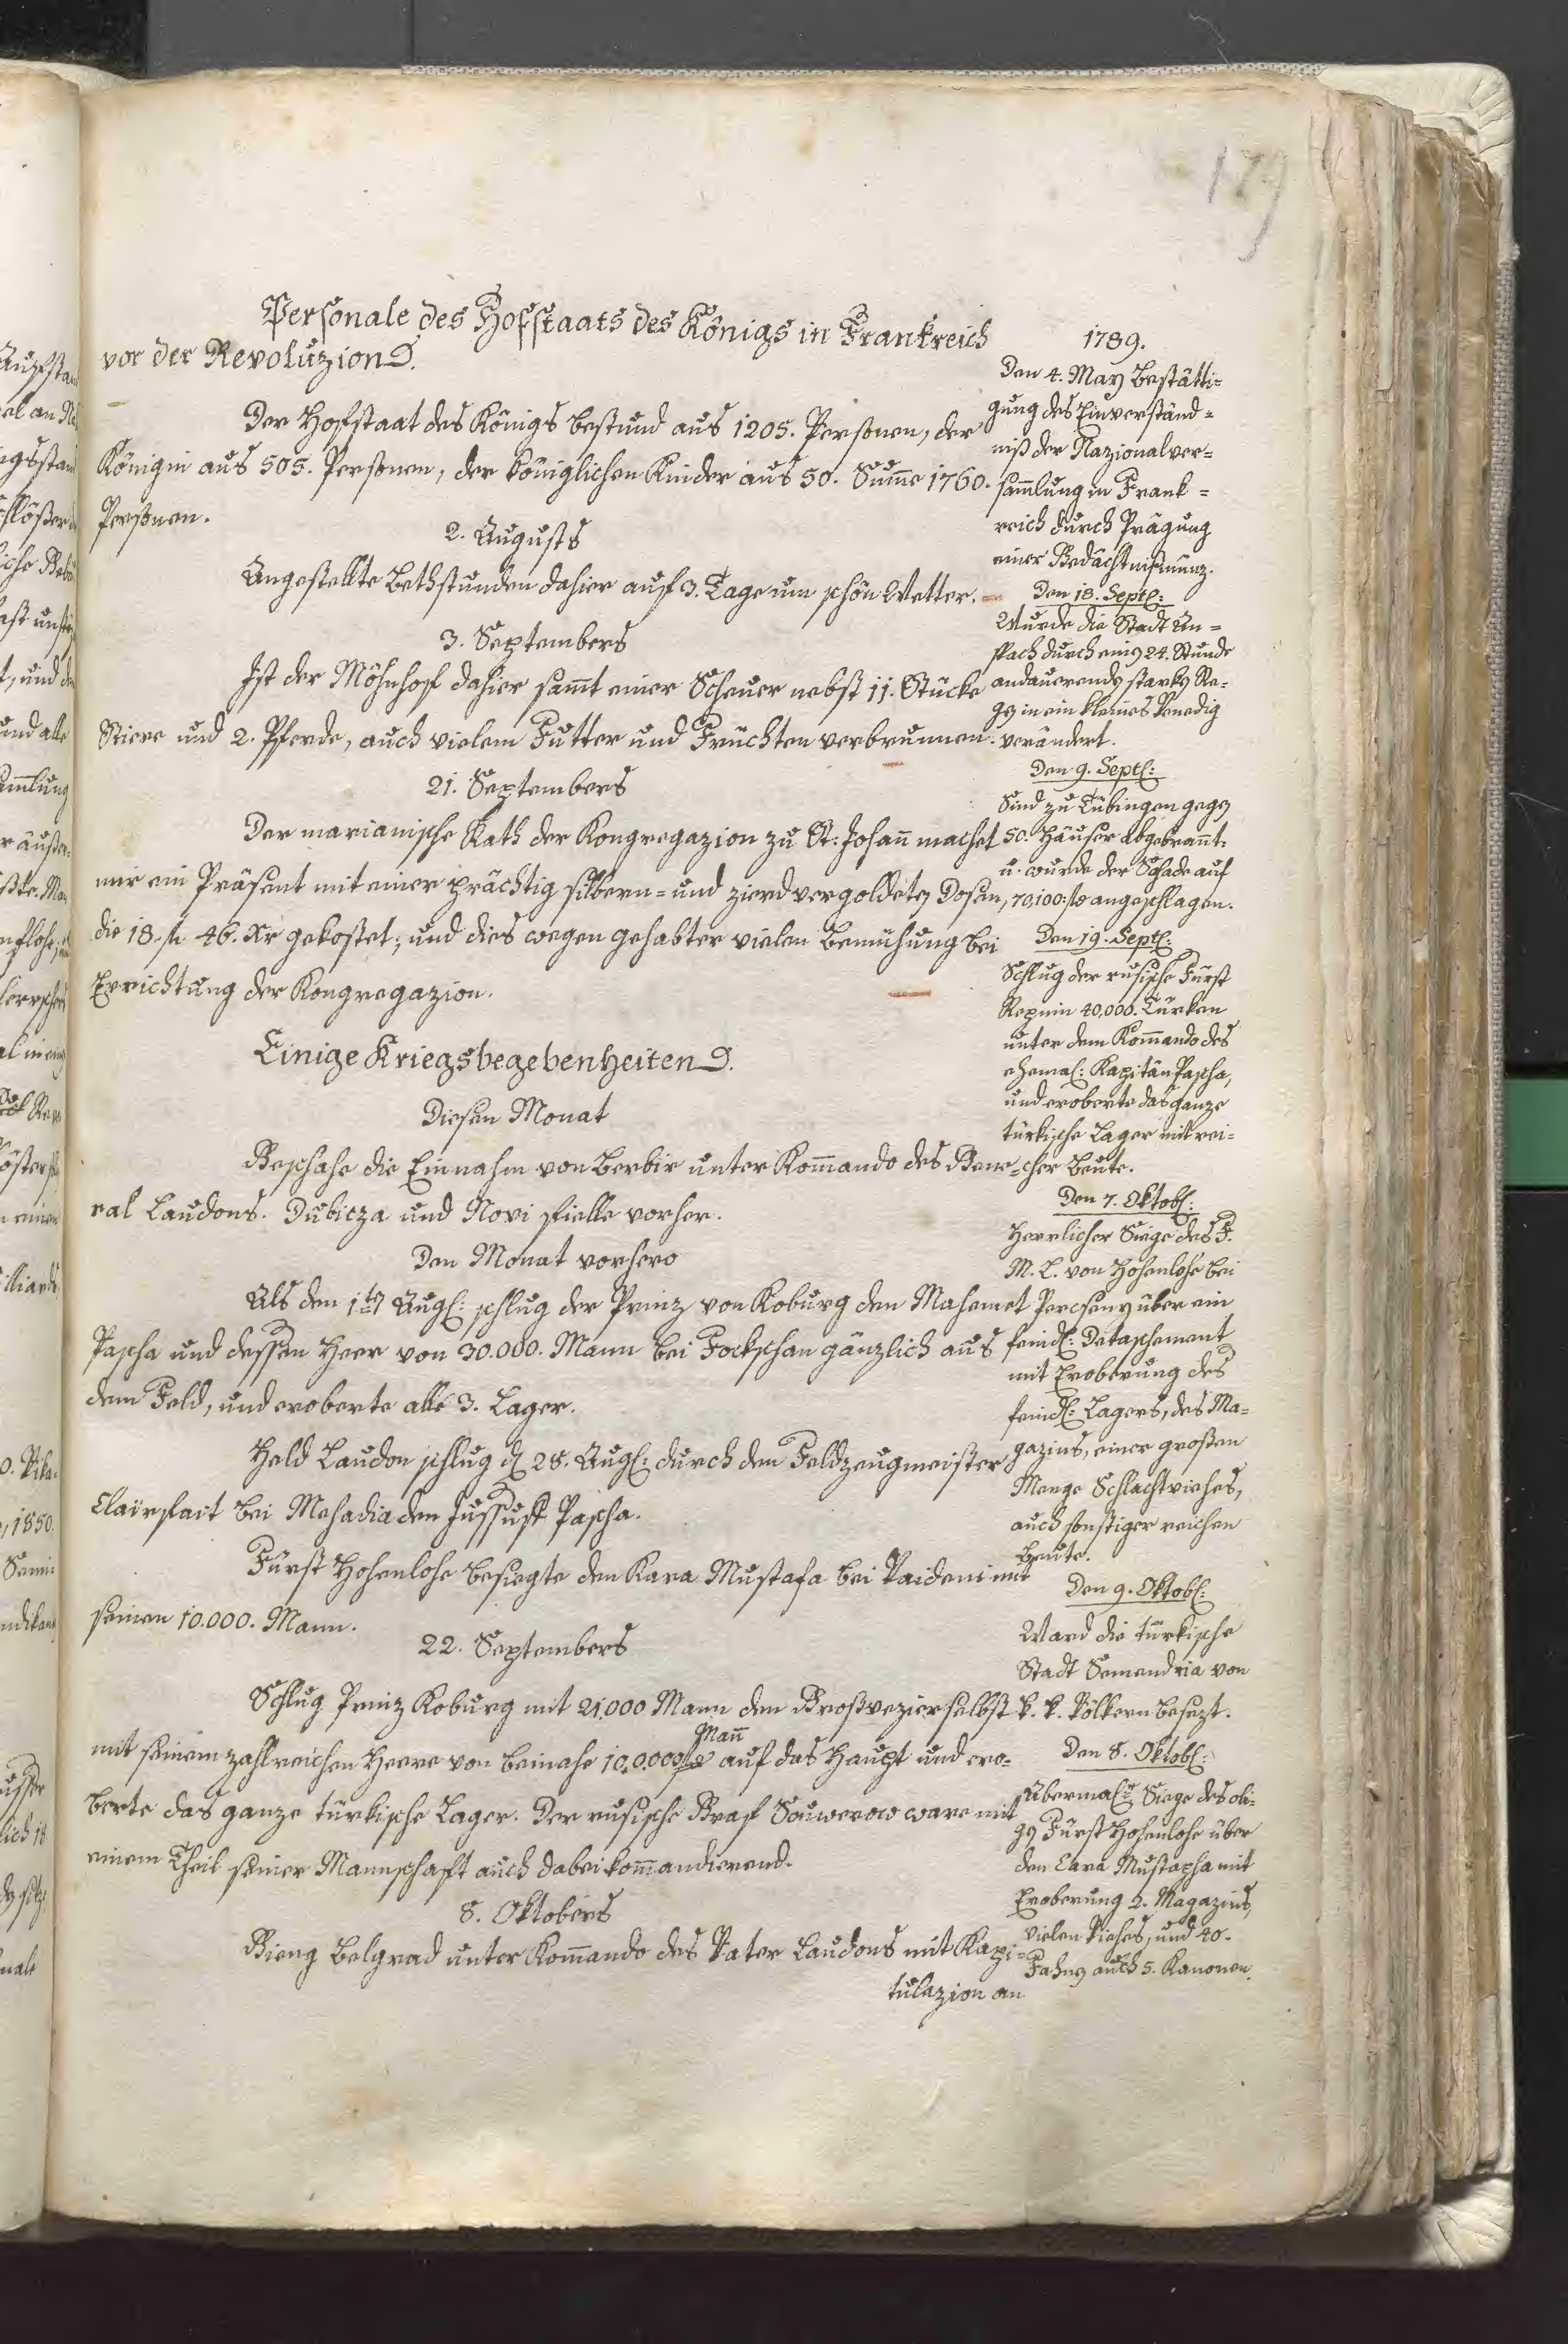 179
Personale des Hofstaats des Königs in Frankreich
vor der Revoluzion.
Der Hofstaat des Königs bestund aus 1205. Personen, der
Königin aus 505. Personen, der königlichen Kinder aus 50. Sum̄e 1760.
Personen.
2. Augusts
Angestellte Bethstunden dahier auf 3. Tage um schön Wetter.
3. Septembers
Ist der Möhnhof dahier sam̄t einer Scheuer nebst 11. Stücke
Stiere und 2. Pferde, auch vielem Futter und Früchten verbrunnen.
21. Septembers
Der marianische Rath der Kongregazion zu St: Johan̄ machet
mir ein Präsent mit einer prächtig silbern= und zierd vergoldeten Dosen,
die 18. fl. 46. Xr gekostet; und dies wegen gehabter vielen Bemühung bei
Errichtung der Kongregazion.
Einige Kriegsbegebenheiten.
Diesen Monat
Geschahe die Einnahm von Berbir unter Kom̄ando des Gene=
ral Laudons. Dubicza und Novi fielle vorher.
Den Monat vorhero
Als den 1ten Aug: schlug der Prinz von Koburg den Mahemet
Pascha und dessen Heer von 30.000. Mann bei Fockschan gänzlich aus
dem Feld, und eroberte alle 3. Lager.
Held Laudon schlug d 28. Aug: durch den Feldzeugmeister
Clairfait bei Mehadia den Jussuff Pascha.
Fürst Hohenlohe besiegte den Kara Mustafa bei Vaideni mit
seinen 10.000. Mann.
22. Septembers
Schlug Prinz Koburg mit 21.000 Mann den Großvezier selbst
Man̄
mit seinem zahlreichen Heere von beinahe 10.0.000 auf das Haupt und ero=
berte das ganze türkische Lager. Der rusische Graf Souwerow ware mit
einem Theil seiner Mannschafft auch dabei kom̄andierend.
8. Oktobers
Gieng Belgrad unter Kom̄ando des Vater Laudons mit Kapi=
tulazion an
1789.
Den 4. May Bestätti=
gung des Einverständ=
niß der Nazionalver=
sam̄lung in Frank=
reich durch Prägung
einer Gedächtnißmünz.
Den 18. Sept:
Wurde die Stadt An=
spach durch einen 24. Stunde
andauerenden starken Re=
gen in ein kleines Venedig
verändert.
Den 9. Sept:
Sind zu Tübingen gegen
50. Häuser abgebran̄t.
u. wurde der Schade auf
70,100: fl angeschlagen.
Den 19. Sept:
Schlug der rusische Fürst
Repnin 40,000. Türken
unter dem Kom̄ando des
ehemal: Kapitän Pascha,
und eroberte das ganze
türkische Lager mit rei=
cher Beute.
Den 7. Oktob:
Herrlicher Siege des F.
M. L. von Hohenlohe bei
Percseny über ein
feindl: Detaschement
mit Eroberung des
feindl: Lagers, des Ma=
gazins, einer großen
Menge Schlachtviehes,
auch sonstiger reichen
Beute.
Den 9. Oktob:
Ward die türkische
Stadt Semendria von
k. k. Völkern besezt.
Den 8. Oktob:
Abermal: Siege des obi=
gen Fürst Hohenlohe über
den Cara Mustapha mit
Eroberung 2. Magazins,
vielen Viehes, und 40.
Fahnen auch 5. Kanonen.